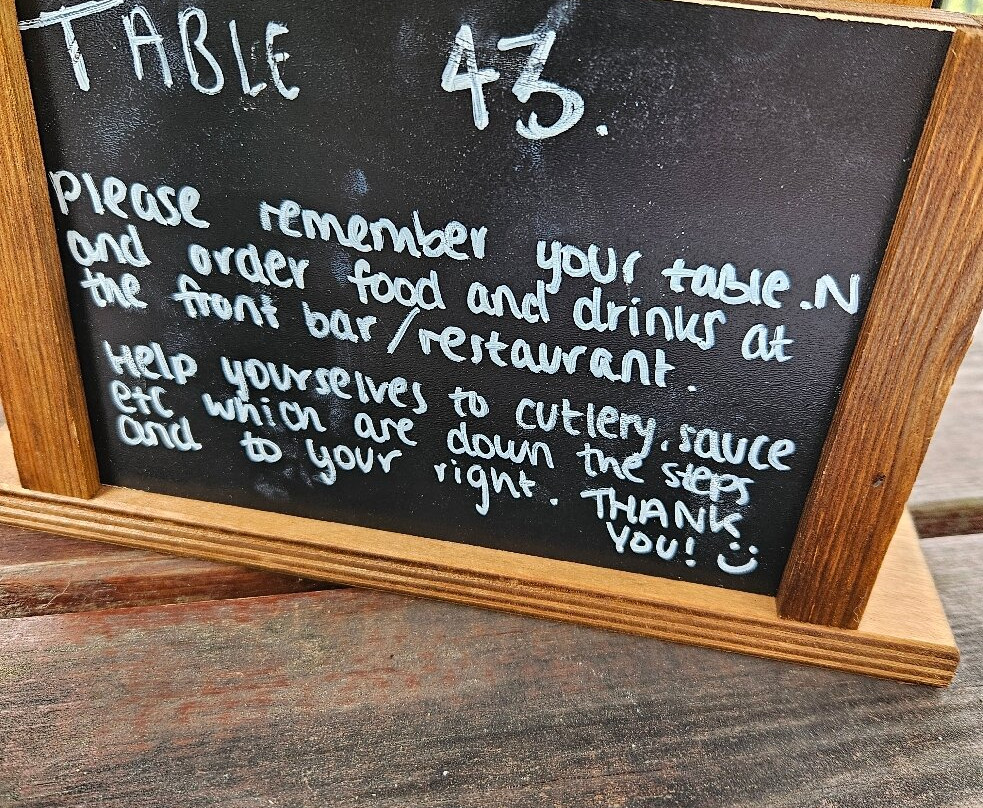 TABLE 43.
please remember your table.N
and order food and drinks at
the front bar/restaurant.
Help yourselves to cutlery, sauce
etc which are down the steps
and to your right. THANK
YOU! :)